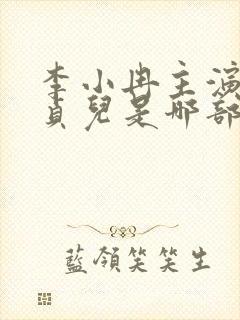 李小冉主演
貞兒是哪部
藍領笑笑生